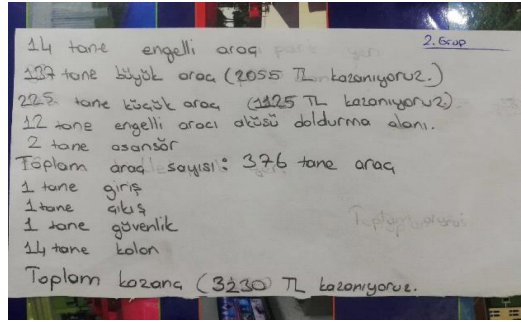 2. Grup
14 tane engelli araç
137 tane büyük araç (2055 TL kazanıyoruz.)
225 tane küçük araç (1125 TL kazanıyoruz).
12 tane engelli aracı aküsü doldurma alanı.
2 tane asansör
Toplam araç sayısı: 376 tane araç
1 tane giriş
1 tane çıkış
1 tane güvenlik
14 tane kolon
Toplam kazanç (3230 TL kazanıyoruz.